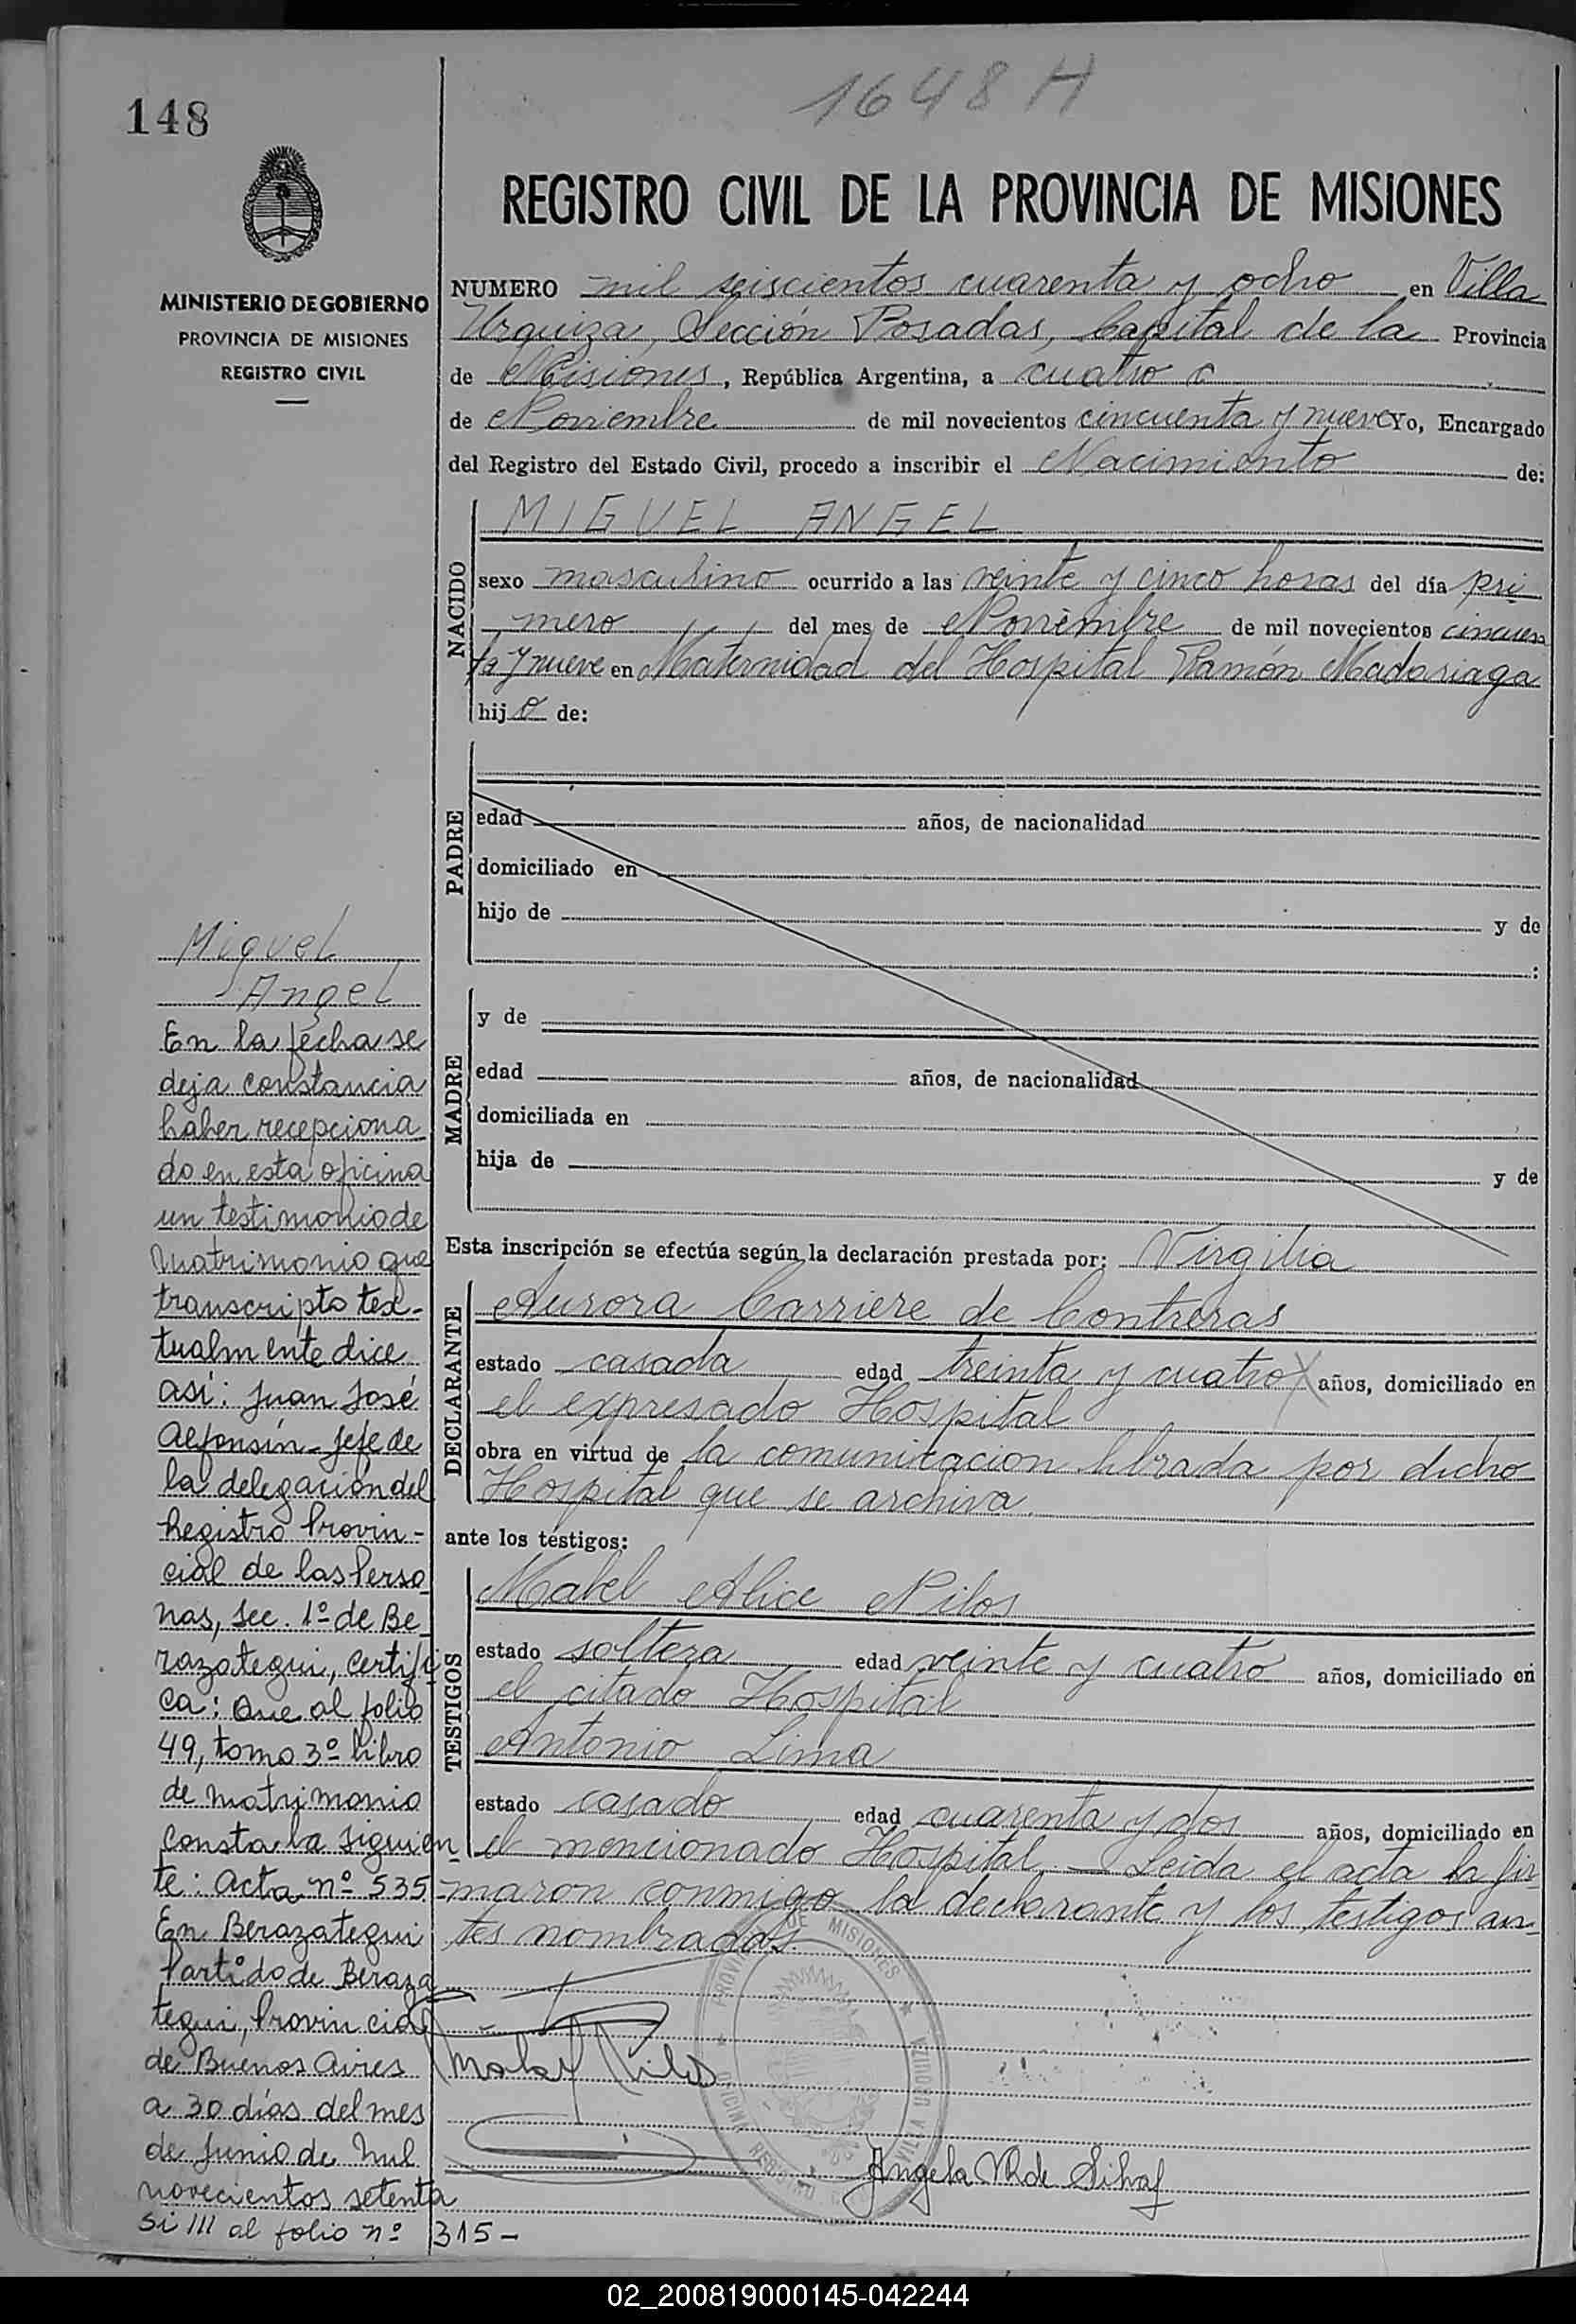 148
1648 H
MINISTERIO DE GOBIERNO
PROVINCIA DE MISIONES
REGISTRO CIVIL
REGISTRO CIVIL DE LA PROVINCIA DE MISIONES
NUMERO mil seiscientos cuarenta y ocho en Villa
Urquiza, Sección Posadas, Capital de la Provincia
de Misiones, República Argentina, a cuatro
de Noviembre de mil novecientos cincuenta y nueve Yo, Encargado
del Registro del Estado Civil, procedo a inscribir el Nacimiento de:
NACIDO
MIGUEL ANGEL
sexo masculino ocurrido a las veinte y cinco horas del día pri
mero del mes de Noviembre de mil novecientos cincuen
ta y nueve en Maternidad del Hospital Ramón Madariaga
hijo de:
PADRE
edad años, de nacionalidad
domiciliado en
hijo de y de
:
MADRE
y de
edad años, de nacionalidad
domiciliada en
hija de y de
Esta inscripción se efectúa según la declaración prestada por: Virgilia
DECLARANTE
Aurora Carriere de Contreras
estado casada edad treinta y cuatro años, domiciliado en
el expresado Hospital
obra en virtud de la comunicacion librada por dicho
Hospital que se archiva
ante los testigos:
TESTIGOS
Mabel Alice Pilos
estado soltera edad veinte y cuatro años, domiciliado en
el citado Hospital
Antonio Lima
estado casado edad cuarenta y dos años, domiciliado en
el mencionado Hospital. — Leida el acta la fir
maron conmigo la declarante y los testigos an
tes nombrados.
PROVINCIA DE MISIONES
Angela de
Miguel
Angel
En la fecha se
deja constancia
haber recepciona
do en esta oficina
un testimonio de
Matrimonio que
transcripto tex-
tualmente dice
así: Juan José
Alfonsín - Jefe de
la delegación del
Registro Provin-
cial de las Perso
nas, Sec. 1º de Be
razategui, certifi
ca: Que al folio
49, tomo 3º libro
de matrimonio
consta la siguien
te: Acta nº 535-
En Berazategui
Partido de Beraza
tegui, Provincia
de Buenos Aires
a 30 días del mes
de Junio de Mil
novecientos setenta
Si III al folio nº 315-
02_200819000145-042244